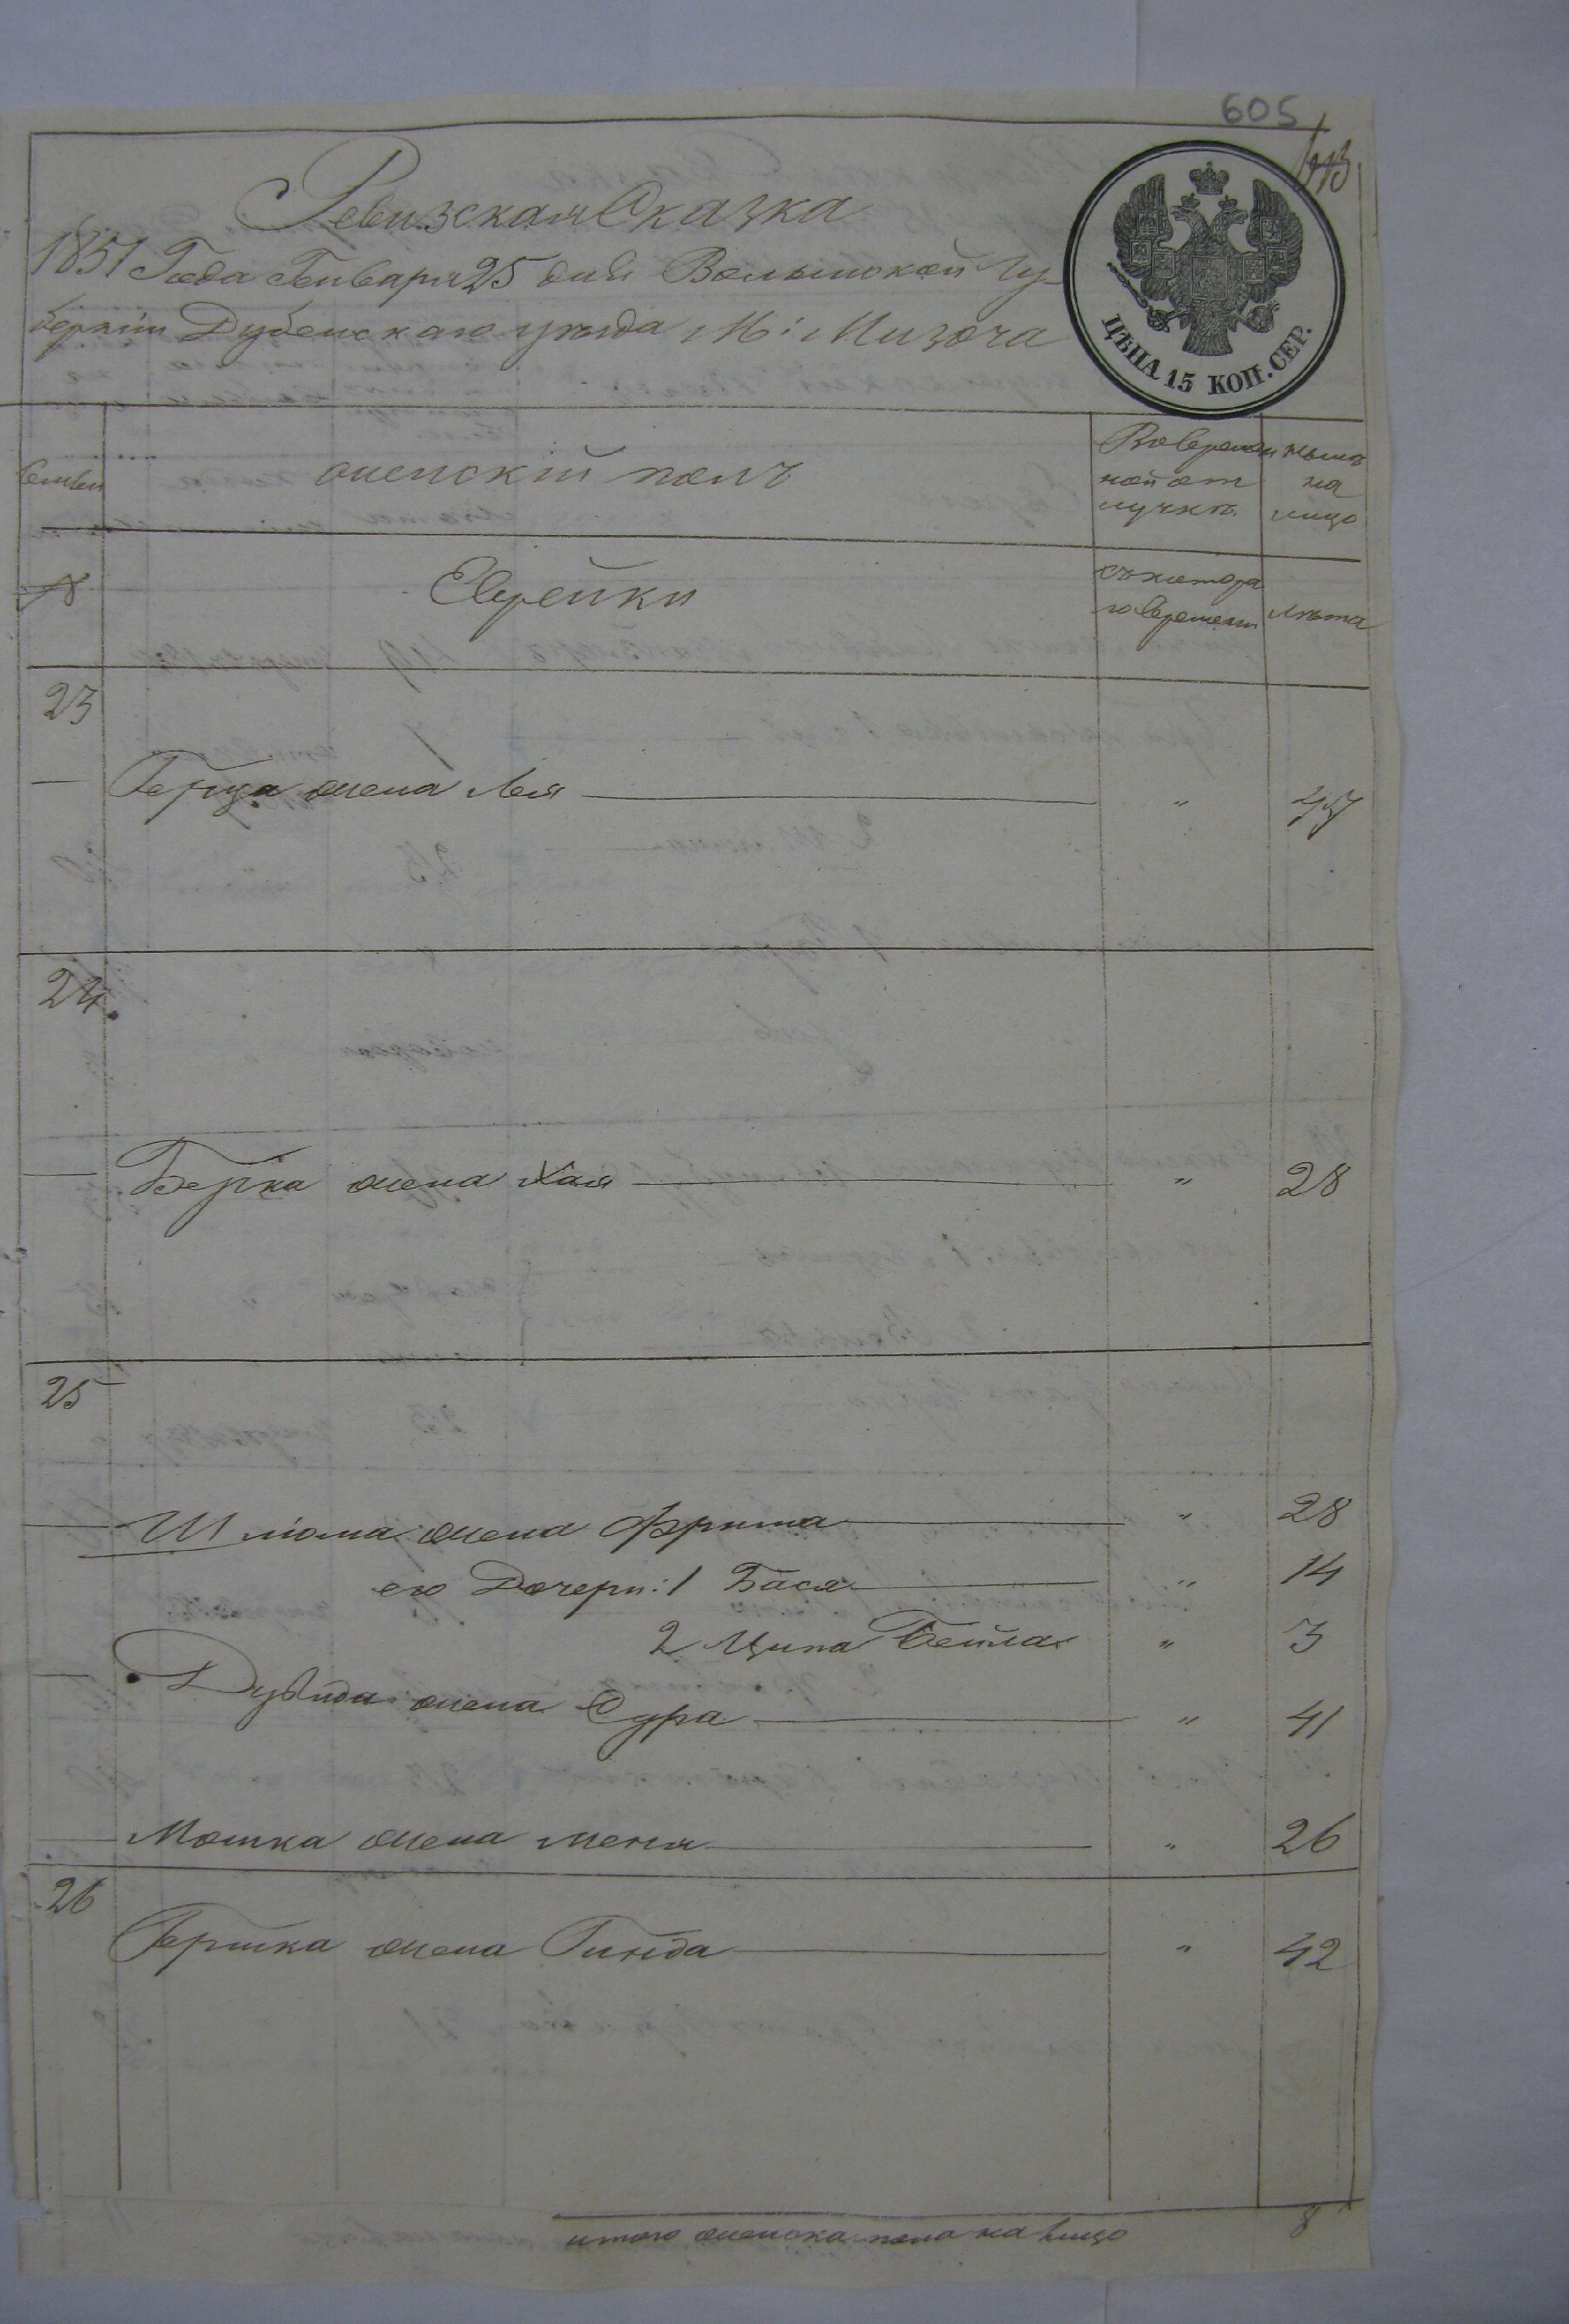 605
Ревизская Сказка
1851 Года Генваря 25 дня Волынской Гу-
берніи Дубенскаго уѣзда М: Мизоча
ЦѢНА 15 КОП. СЕР.
Семьи
женскій полъ
Во времен
ной от
лучкѣ
нынѣ
на
лицо
№
Еврейки
съ котора
го времени
лѣта
23
Герша жена Лея " 47
24.
Берка жена Хая " 28
25
Шліома жена Фрима " 28
его Дочери: 1 Бася " 14
2 Ципа Бейла " 3
Дувида жена Сура " 41
Мошка жена Меня " 26
26
Гершка жена Гинда " 42
итого женска пола на лицо 8